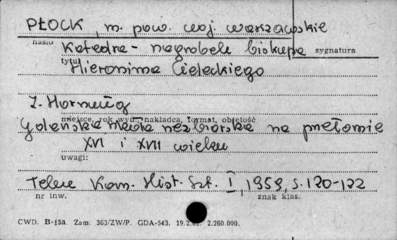 PŁOCK, m. pow. woj warszawskie
hasło
Katedra - nagrobek biskupa
sygnatura
tytuł
Hieronima Cieleckiego
Z. Hornung
miejsce, rok wyd., nakładca, format, objętość
Gdańska szkoła rzeźbiarska na przełomie
XVI i XVII wieku
uwagi:
Teka Kom. Hist. Szt. I, 1959, s. 120-122
nr inw.
znak klas.
CWD. B-15a. Zam. 363/ZW/P. GDA-543. 2.260.000.